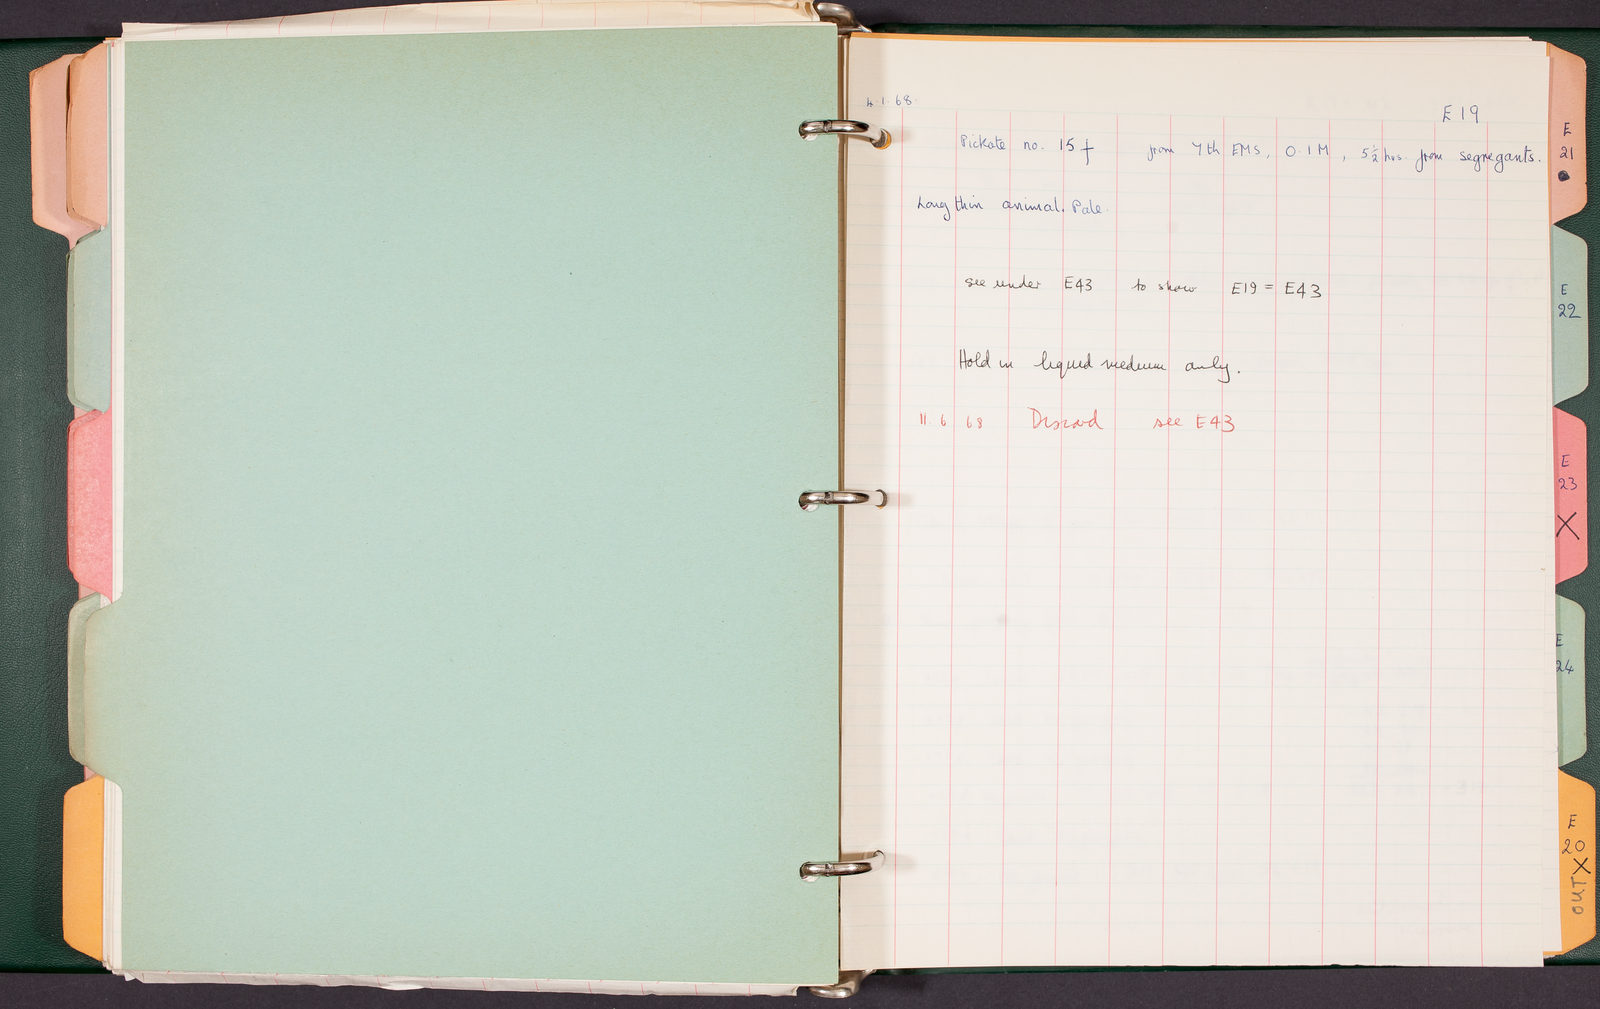 4.1.68.
E 19
Pickate no. 15f from 7th EMS, 0.1M, 5½ hrs. from segregants.
Long thin animal. Pale.
see under E43 to show E19 = E43
Hold in liquid medium only.
11.6 68 Discard see E43
E
21
E
22
E
23
X
E
24
E
20
X
OUT